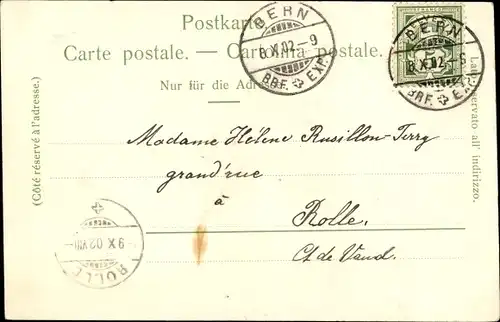 Postkarte
Carte postale. — Cartolina postale.
Nur für die Adresse
(Côté réservé à l'adresse.)
Lato riservato all' indirizzo.
BERN
8.X.02.-9
BRF. EXP.
BERN
8.X.02.-9
BRF. EXP.
FRANCO
Madame Hélène Rusillon-Terry
grand'rue
à
Rolle.
Ct. de Vaud.
9.X.02.VII-
ROLLE